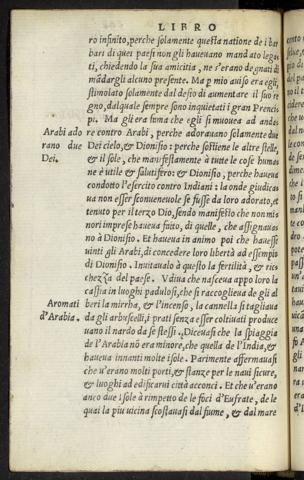 LIBRO
ro infinito, perche solamente questa natione de i bar
bari di quei paesi non gli haueuano mandato legati,
ti, chiedendo la sua amicitia, ne s'erano degnati di
mādargli alcuno presente. Ma p mio auiso era egli
stimolato solamente dal desio di aumentare il suo re
gno, dalquale sempre sono inquietati i gran Prenci
pi. Ma gli era fama che egli si moueua ad andare
Arabi ado
rano due
Dei.
re contro Arabi, perche adorauano solamente due
Dei cielo, & Dionisio: perche sostiene le altre stelle,
& il sole, che manifestamente à tutte le cose humane
ne è utile & salutifero: & Dionisio, perche haueua
condotto l'esercito contro Indiani: la onde giudicaua
ua non esser sconueneuole se fusse da loro adorato, et
tenuto per il terzo Dio, sendo manifesto che non mi
nori imprese haueua fatto, di quelle, che assignauano
no à Dionisio. Et haueua in animo poi che hauesse
uinti gli Arabi, di concedere loro libertà ad essempio
di Dionisio. Inuitaualo à questo la fertilità, & ric
chezza del paese. Vdiua che nasceua appo loro la
cassia in luoghi padulosi, che si raccoglieua de gli al
Aromati
d'Arabia.
beri la mirrha, & l'incenso, la cannella si tagliaua
da gli arbuscelli, i prati senza esser coltiuati produce
uano il nardo da se stessi. Diceuasi che la spiaggia
de l'Arabia nō era minore, che quella de l'India, &
haueua innanti molte isole. Parimente affermauasi
che u'erano molti porti, & stanze per le naui sicure,
& luoghi ad edificarui città acconci. Et che u'erano
anco due isole à rimpetto de le foci d'Eufrate, de le
quai la piu uicina scostauasi dal fiume, & dal mare